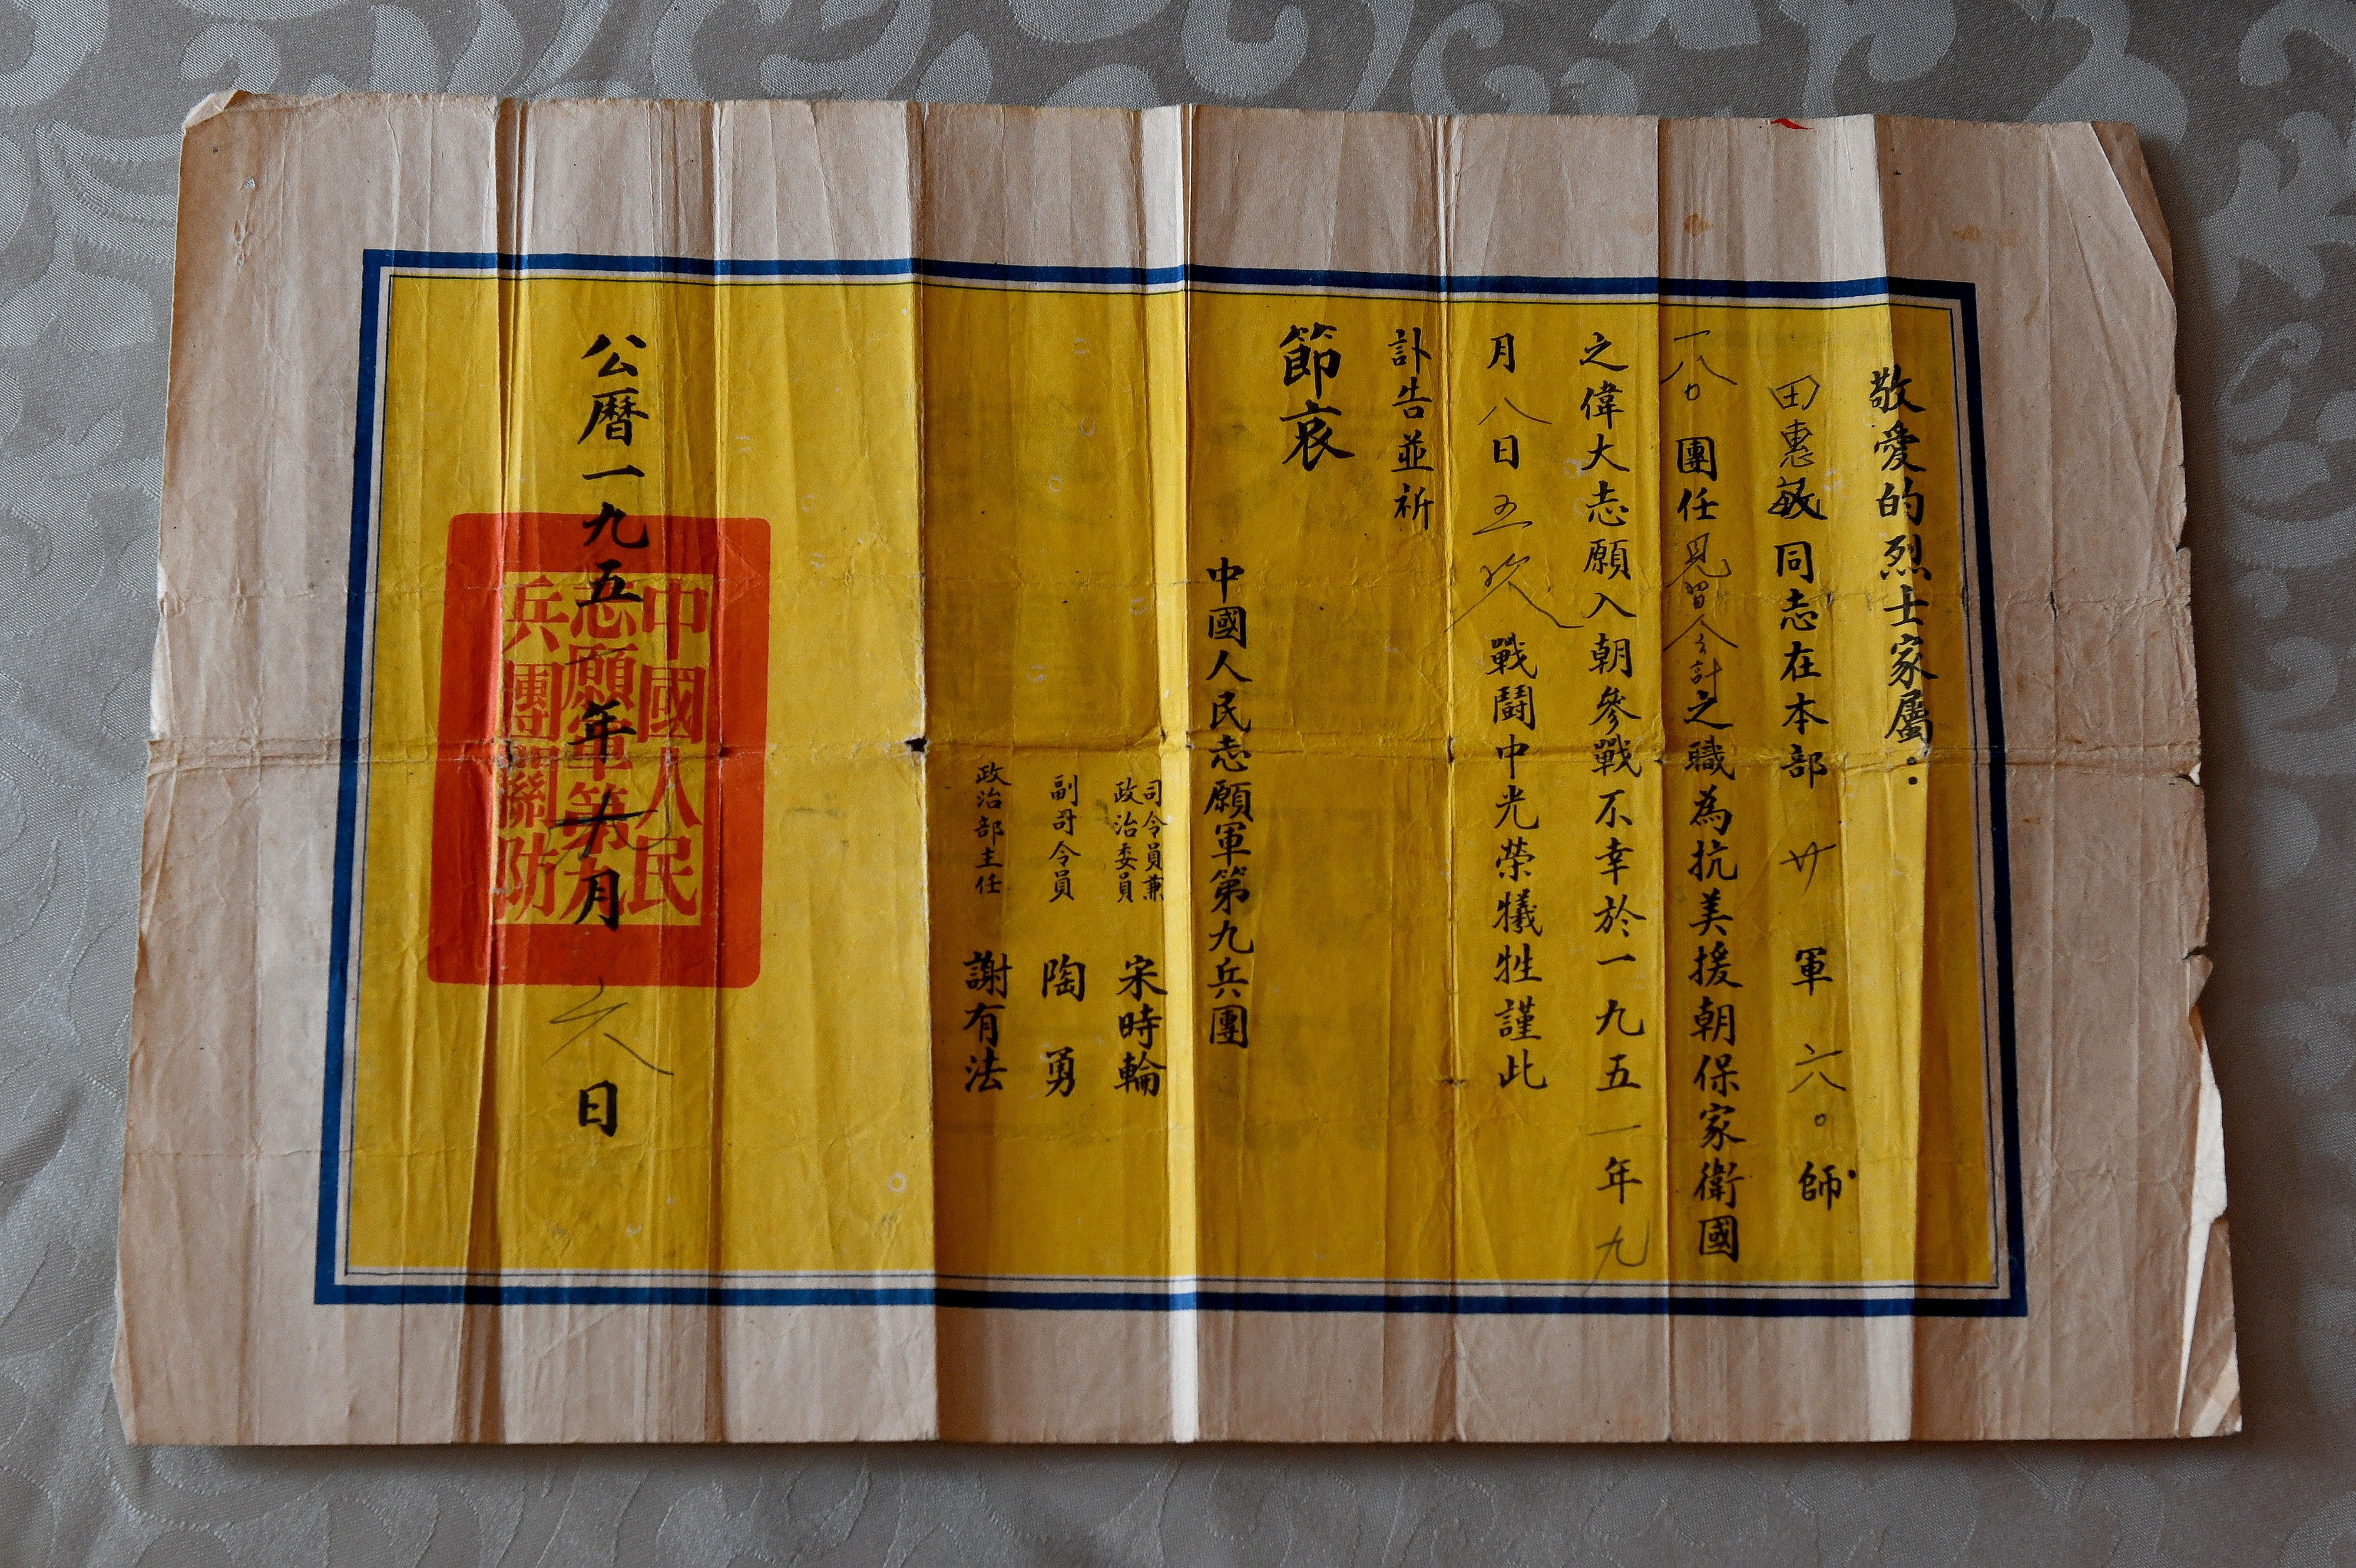 敬愛的烈士家屬：
田惠敏同志在本部廿軍六〇師
一八〇團任見習会計之職為抗美援朝保家衛國
之偉大志願入朝參戰不幸於一九五一年九
月八日五次戰鬪中光榮犧牲謹此
訃告並祈
節哀
中國人民志願軍第九兵團
司令員兼
政治委員 宋時輪
副司令員 陶勇
政治部主任 謝有法
公曆一九五 年 月六日
中國人民
志願軍第九
兵團 防